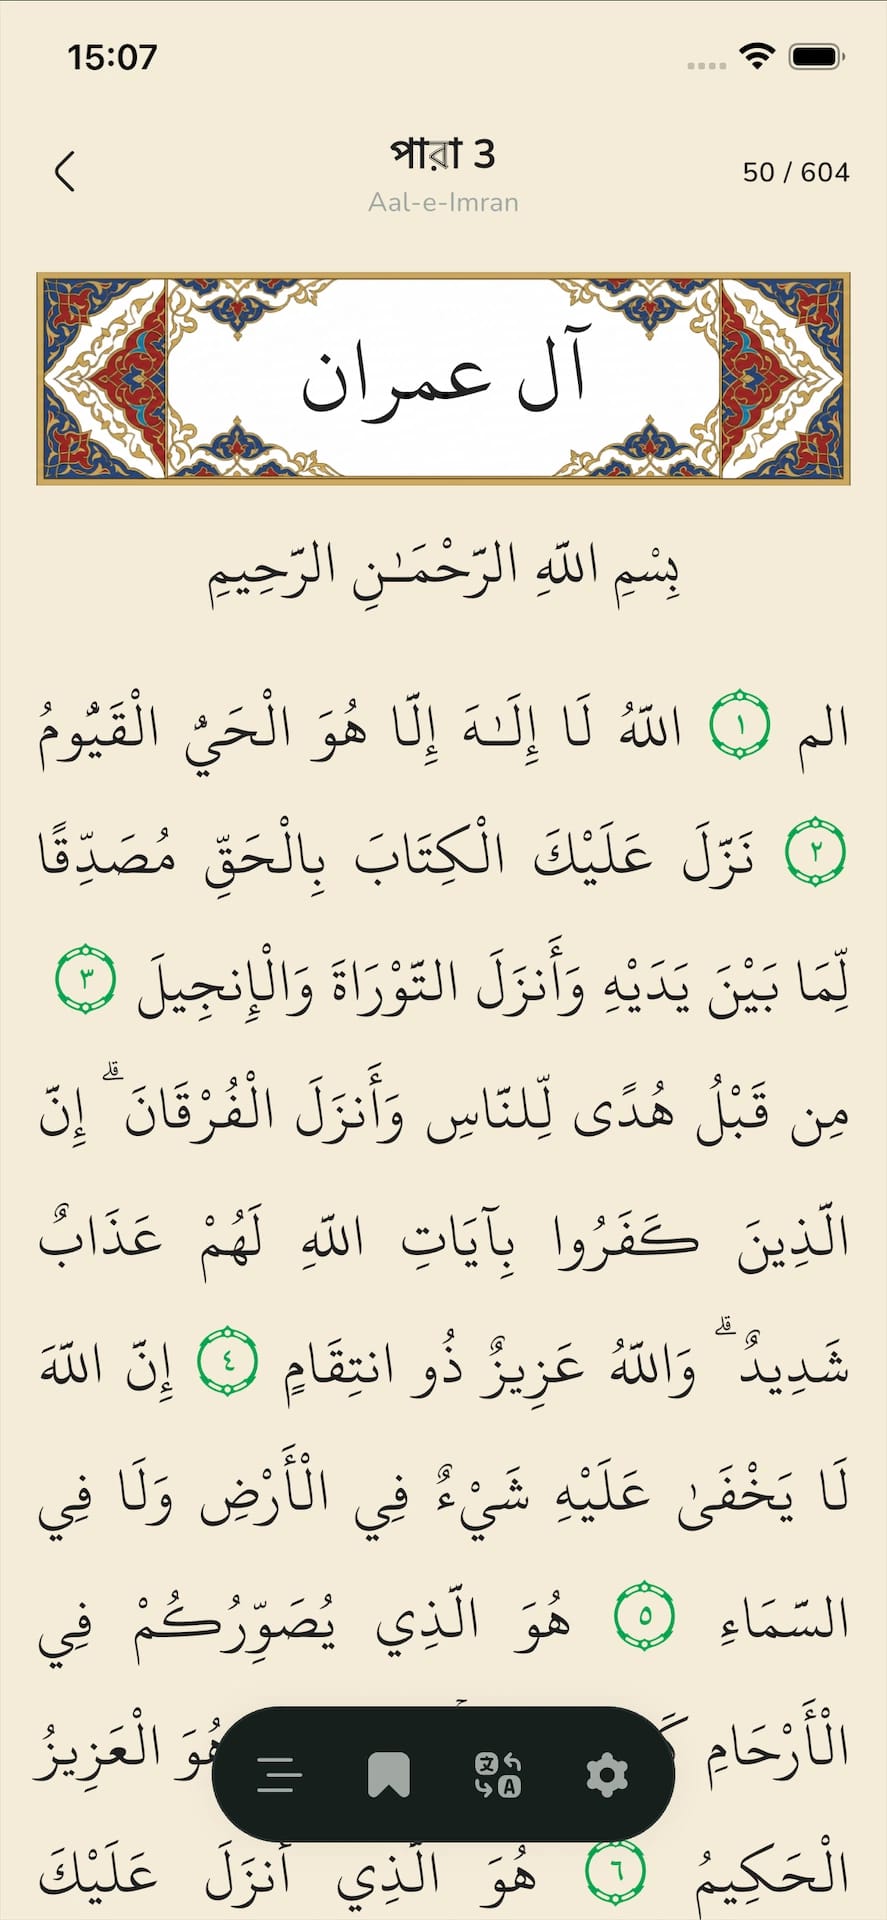 15:07
পারা 3
Aal-e-Imran
50 / 604
آل عمران
بِسْمِ اللَّهِ الرَّحْمَـٰنِ الرَّحِيمِ
الم ١ اللَّهُ لَا إِلَـٰهَ إِلَّا هُوَ الْحَيُّ الْقَيُّومُ
٢ نَزَّلَ عَلَيْكَ الْكِتَابَ بِالْحَقِّ مُصَدِّقًا
لِّمَا بَيْنَ يَدَيْهِ وَأَنزَلَ التَّوْرَاةَ وَالْإِنجِيلَ ٣
مِن قَبْلُ هُدًى لِّلنَّاسِ وَأَنزَلَ الْفُرْقَانَ ۗ إِنَّ
الَّذِينَ كَفَرُوا بِآيَاتِ اللَّهِ لَهُمْ عَذَابٌ
شَدِيدٌ ۗ وَاللَّهُ عَزِيزٌ ذُو انتِقَامٍ ٤ إِنَّ اللَّهَ
لَا يَخْفَىٰ عَلَيْهِ شَيْءٌ فِي الْأَرْضِ وَلَا فِي
السَّمَاءِ ٥ هُوَ الَّذِي يُصَوِّرُكُمْ فِي
الْأَرْحَامِ هُوَ الْعَزِيزُ
الْحَكِيمُ ٦ هُوَ الَّذِي أَنزَلَ عَلَيْكَ